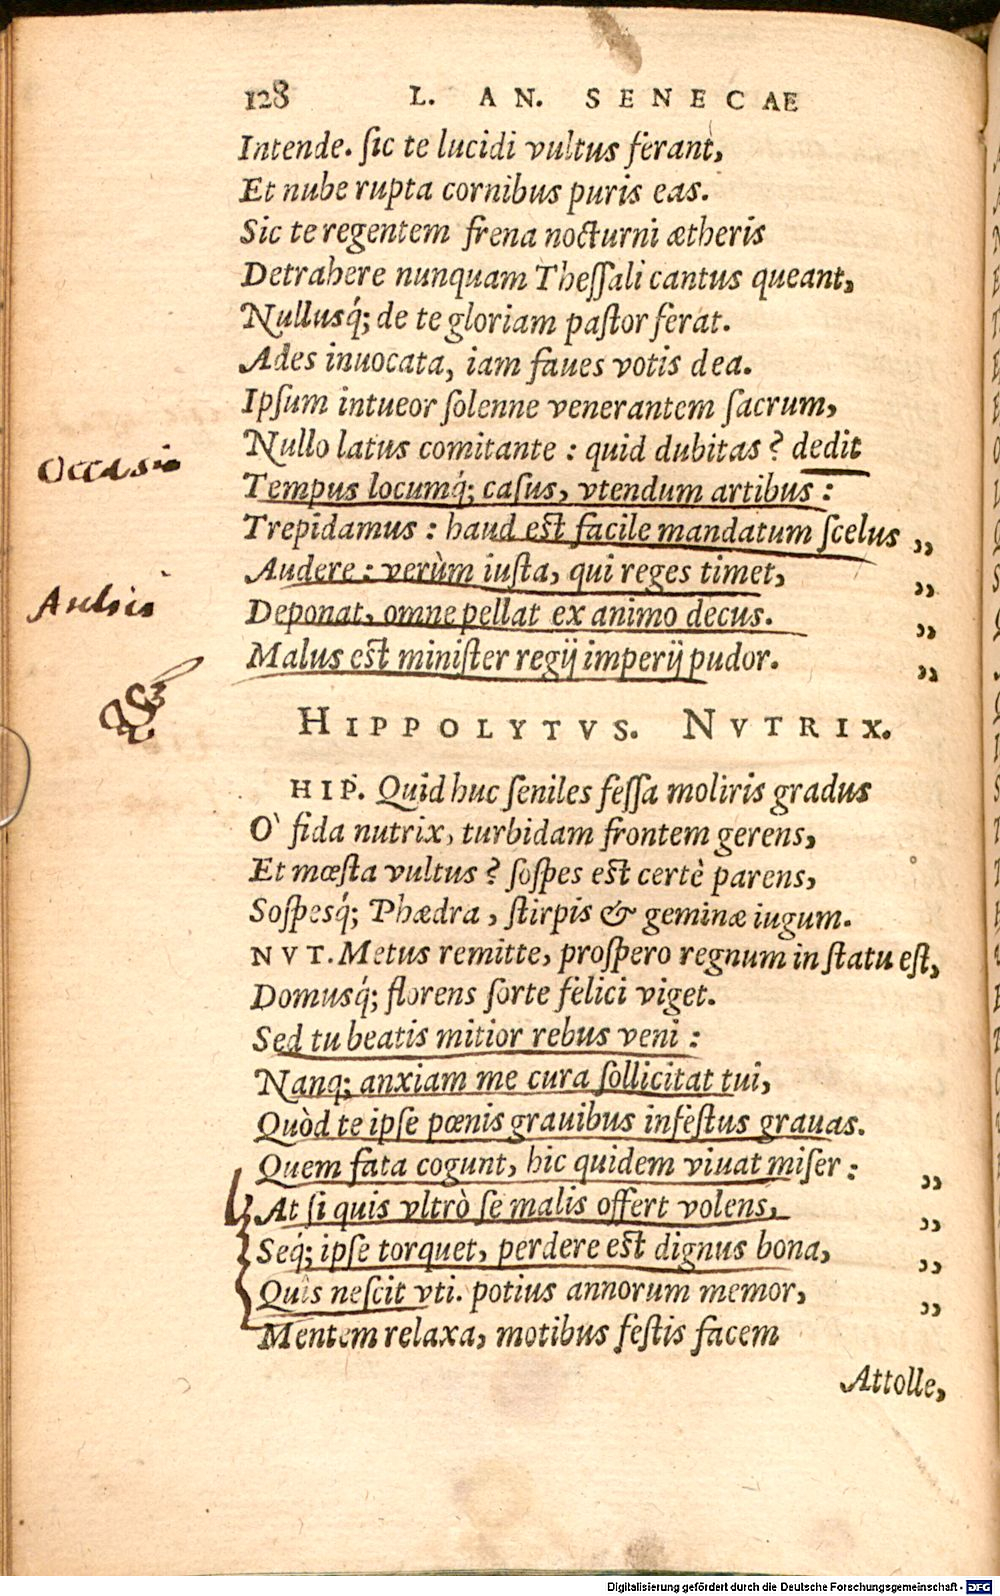 128 L. AN. SENECAE
Intende. ſic te lucidi vultus ferant,
Et nube rupta cornibus puris eas.
Sic te regentem frena nocturni ætheris
Detrahere nunquam Theſſali cantus queant,
Nullusq́; de te gloriam paſtor ferat.
Ades inuocata, iam faues votis dea.
Ipſum intueor ſolenne venerantem ſacrum,
Nullo latus comitante : quid dubitas ? dedit
Occasio
Tempus locumq́; caſus, vtendum artibus :
Trepidamus : haud eſt facile mandatum ſcelus „
Audere : verùm iuſta, qui reges timet, „
Aulici
Deponat, omne pellat ex animo decus. „
Malus eſt miniſter regij imperij pudor. „
HIPPOLYTVS. NVTRIX.
HIP. Quid huc ſeniles feſſa moliris gradus
O` fida nutrix, turbidam frontem gerens,
Et mœſta vultus ? ſoſpes eſt certè parens,
Soſpesq́; Phædra , ſtirpis & geminæ iugum.
NVT. Metus remitte, proſpero regnum in ſtatu eſt,
Domusq́; florens ſorte felici viget.
Sed tu beatis mitior rebus veni :
Nanq; anxiam me cura ſollicitat tui,
Quòd te ipſe pœnis grauibus infeſtus grauas.
Quem fata cogunt, hic quidem viuat miſer : „
At ſi quis vltrò ſe malis offert volens, „
Seq́; ipſe torquet, perdere eſt dignus bona, „
Quîs neſcit vti. potius annorum memor, „
Mentem relaxa, motibus feſtis facem
Attolle,
Digitalisierung gefördert durch die Deutsche Forschungsgemeinschaft - DFG